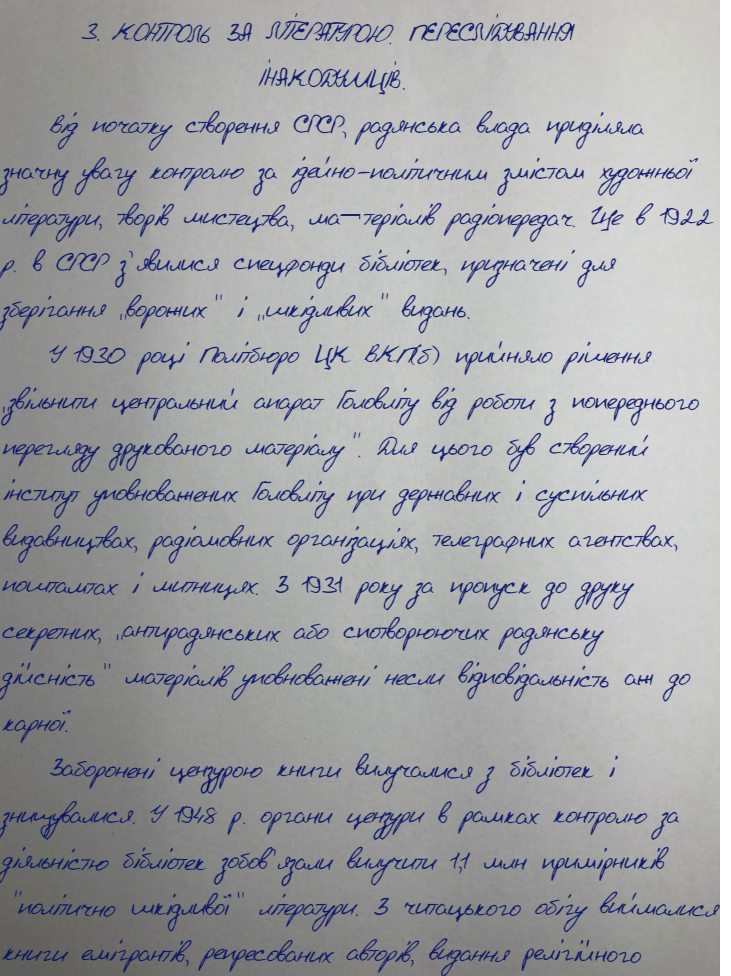 3. КОНТРОЛЬ ЗА ЛІТЕРАТУРОЮ. ПЕРЕСЛІДУВАННЯ
ІНАКОДУМЦІВ.
Від початку створення СРСР, радянська влада приділяла
значну увагу контролю за ідейно-політичним змістом художньої
літератури, творів мистецтва, ма-теріалів радіопередач. Ще в 1922
р. в СРСР з'явилися спецфонди бібліотек, призначені для
зберігання „ворожих" і „шкідливих" видань.
У 1930 році Політбюро ЦК ВКП(б) прийняло рішення
„звільнити центральний апарат Головліту від роботи з попереднього
перегляду друкованого матеріалу". Для цього був створений
інститут уповноважених Головліту при державних і суспільних
видавництвах, радіомовних організаціях, телеграфних агентствах,
поштамтах і митницях. З 1931 року за пропуск до друку
секретних, „антирадянських або спотворюючих радянську
дійсність" матеріалів уповноважені несли відповідальність аж до
карної.
Заборонені цензурою книги вилучалися з бібліотек і
знищувалися. У 1948 р. органи цензури в рамках контролю за
діяльністю бібліотек зобов'язали вилучити 1,1 млн примірників
"політично шкідливої" літератури. З читацького обігу виймалися
книги емігрантів, репресованих авторів, видання релігійного